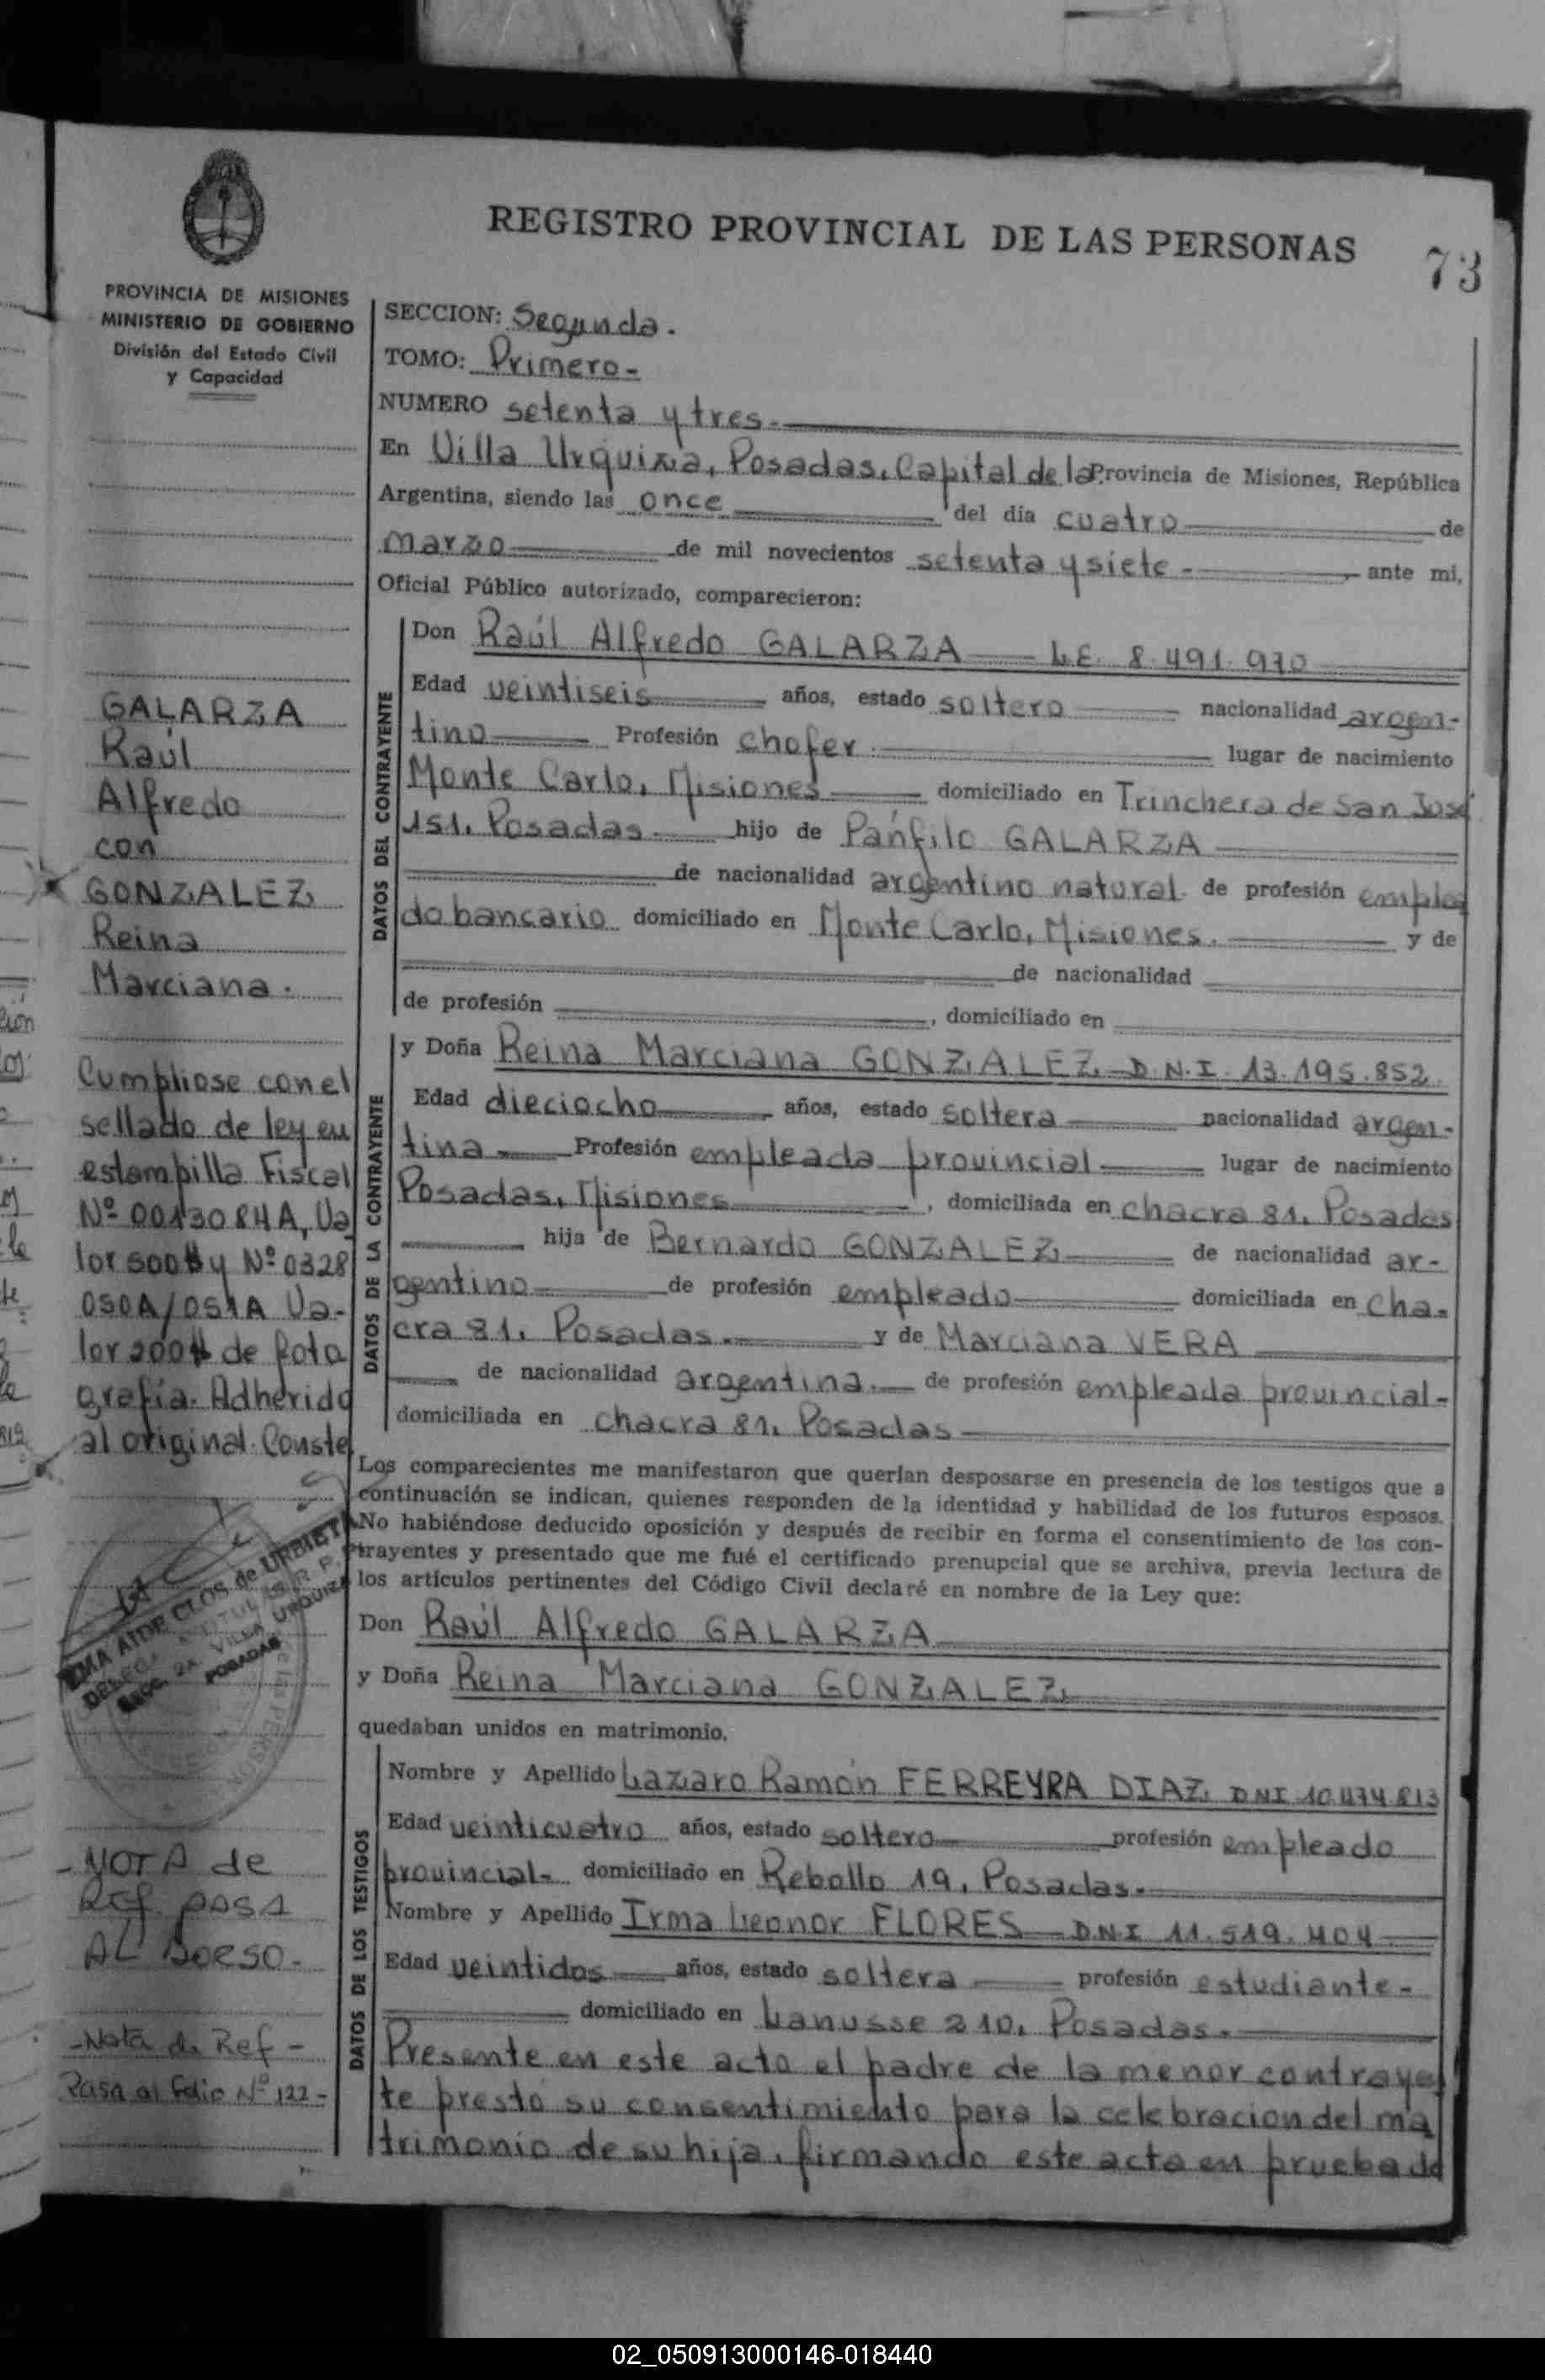 REGISTRO PROVINCIAL DE LAS PERSONAS
73
PROVINCIA DE MISIONES
MINISTERIO DE GOBIERNO
División del Estado Civil
y Capacidad
GALARZA
Raúl
Alfredo
con
GONZALEZ
Reina
Marciana.
Cumpliose con el
sellado de ley en
estampilla Fiscal
Nº 0013084A, Va
lor 500$ y Nº 0328
050A/051A Va-
lor 200$ de foto
grafía. Adherido
al original. Conste
EMA AIDE CLOS de URBIETA
SECC. 2A. VILLA URQUIZA
POSADAS
- NOTA de
Ref. pasa
AL Dorso-
-Nota de Ref-
Pasa al folio Nº 122-
SECCION: Segunda.
TOMO: Primero-
NUMERO setenta y tres.
En Villa Urquiza, Posadas, Capital de la Provincia de Misiones, República
Argentina, siendo las once del día cuatro de
marzo de mil novecientos setenta y siete- ante mi,
Oficial Público autorizado, comparecieron:
DATOS DEL CONTRAYENTE
Don Raúl Alfredo GALARZA L.E. 8.491.970
Edad veintiseis años, estado soltero nacionalidad argen-
tino Profesión chofer lugar de nacimiento
Monte Carlo, Misiones domiciliado en Trinchera de San José
151. Posadas. hijo de Pánfilo GALARZA
de nacionalidad argentino natural de profesión emplea
do bancario domiciliado en Monte Carlo, Misiones. y de
de nacionalidad
de profesión , domiciliado en
DATOS DE LA CONTRAYENTE
y Doña Reina Marciana GONZALEZ D.N.I. 13.195.852
Edad dieciocho años, estado soltera nacionalidad argen-
tina Profesión empleada provincial lugar de nacimiento
Posadas, Misiones , domiciliada en chacra 81. Posadas
hija de Bernardo GONZALEZ de nacionalidad ar-
gentino de profesión empleado domiciliada en cha-
cra 81. Posadas. y de Marciana VERA
de nacionalidad argentina. de profesión empleada provincial-
domiciliada en chacra 81. Posadas
Los comparecientes me manifestaron que querían desposarse en presencia de los testigos que a
continuación se indican, quienes responden de la identidad y habilidad de los futuros esposos.
No habiéndose deducido oposición y después de recibir en forma el consentimiento de los con-
trayentes y presentado que me fué el certificado prenupcial que se archiva, previa lectura de
los artículos pertinentes del Código Civil declaré en nombre de la Ley que:
Don Raúl Alfredo GALARZA
y Doña Reina Marciana GONZALEZ
quedaban unidos en matrimonio.
DATOS DE LOS TESTIGOS
Nombre y Apellido Lazaro Ramón FERREYRA DIAZ DNI 10.474.813
Edad veinticuatro años, estado soltero profesión empleado
provincial- domiciliado en Rebollo 19, Posadas.
Nombre y Apellido Irma Leonor FLORES D.N.I 11.519.404
Edad veintidos años, estado soltera profesión estudiante-
domiciliado en Lanusse 210. Posadas.
Presente en este acto el padre de la menor contrayen
te prestó su consentimiento para la celebracion del ma
trimonio de su hija, firmando este acto en prueba de
02_050913000146-018440